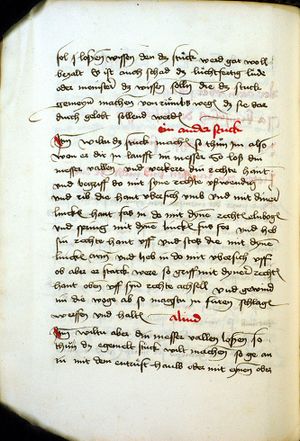 sol j lossen wissen den dz stuck werd gar woll
bezalt Es ist auch schad dz liechtfertig lüde
oder menster dz wissen sollen die dz stuck
gemeyn machen von rümbs wegen dz sie dar
durch gelobt sollend werden
Ein ander stuck
Item wiltu dz stuck machen so thun im also
wen er dir in laufft im messer so loss din
messer vallen und verkere din rechte hant
und begriff do mit sine rechte usswendig
und rib die hant ubersich umb und mit diner
lincken hant fass in do mit dyne rechten elnbogen
und spring mit dyne lincken fuss fos und heb
sin rechte hant uff und stos die mit dyne
lincken arm und heb in do mit ubersich uff
ob aber er starck were so griff mit dyner rechten
hant oben uff sin rechte achsell und gewind
im die woge ab so magstu in furen schlagen
werffen und halten
Aliud
Item wiltu aber din messer vallen lossen so
thun dz egemelt stuck wilt machen so ge an
in mit dem entrust hauw oder mit eynen ober